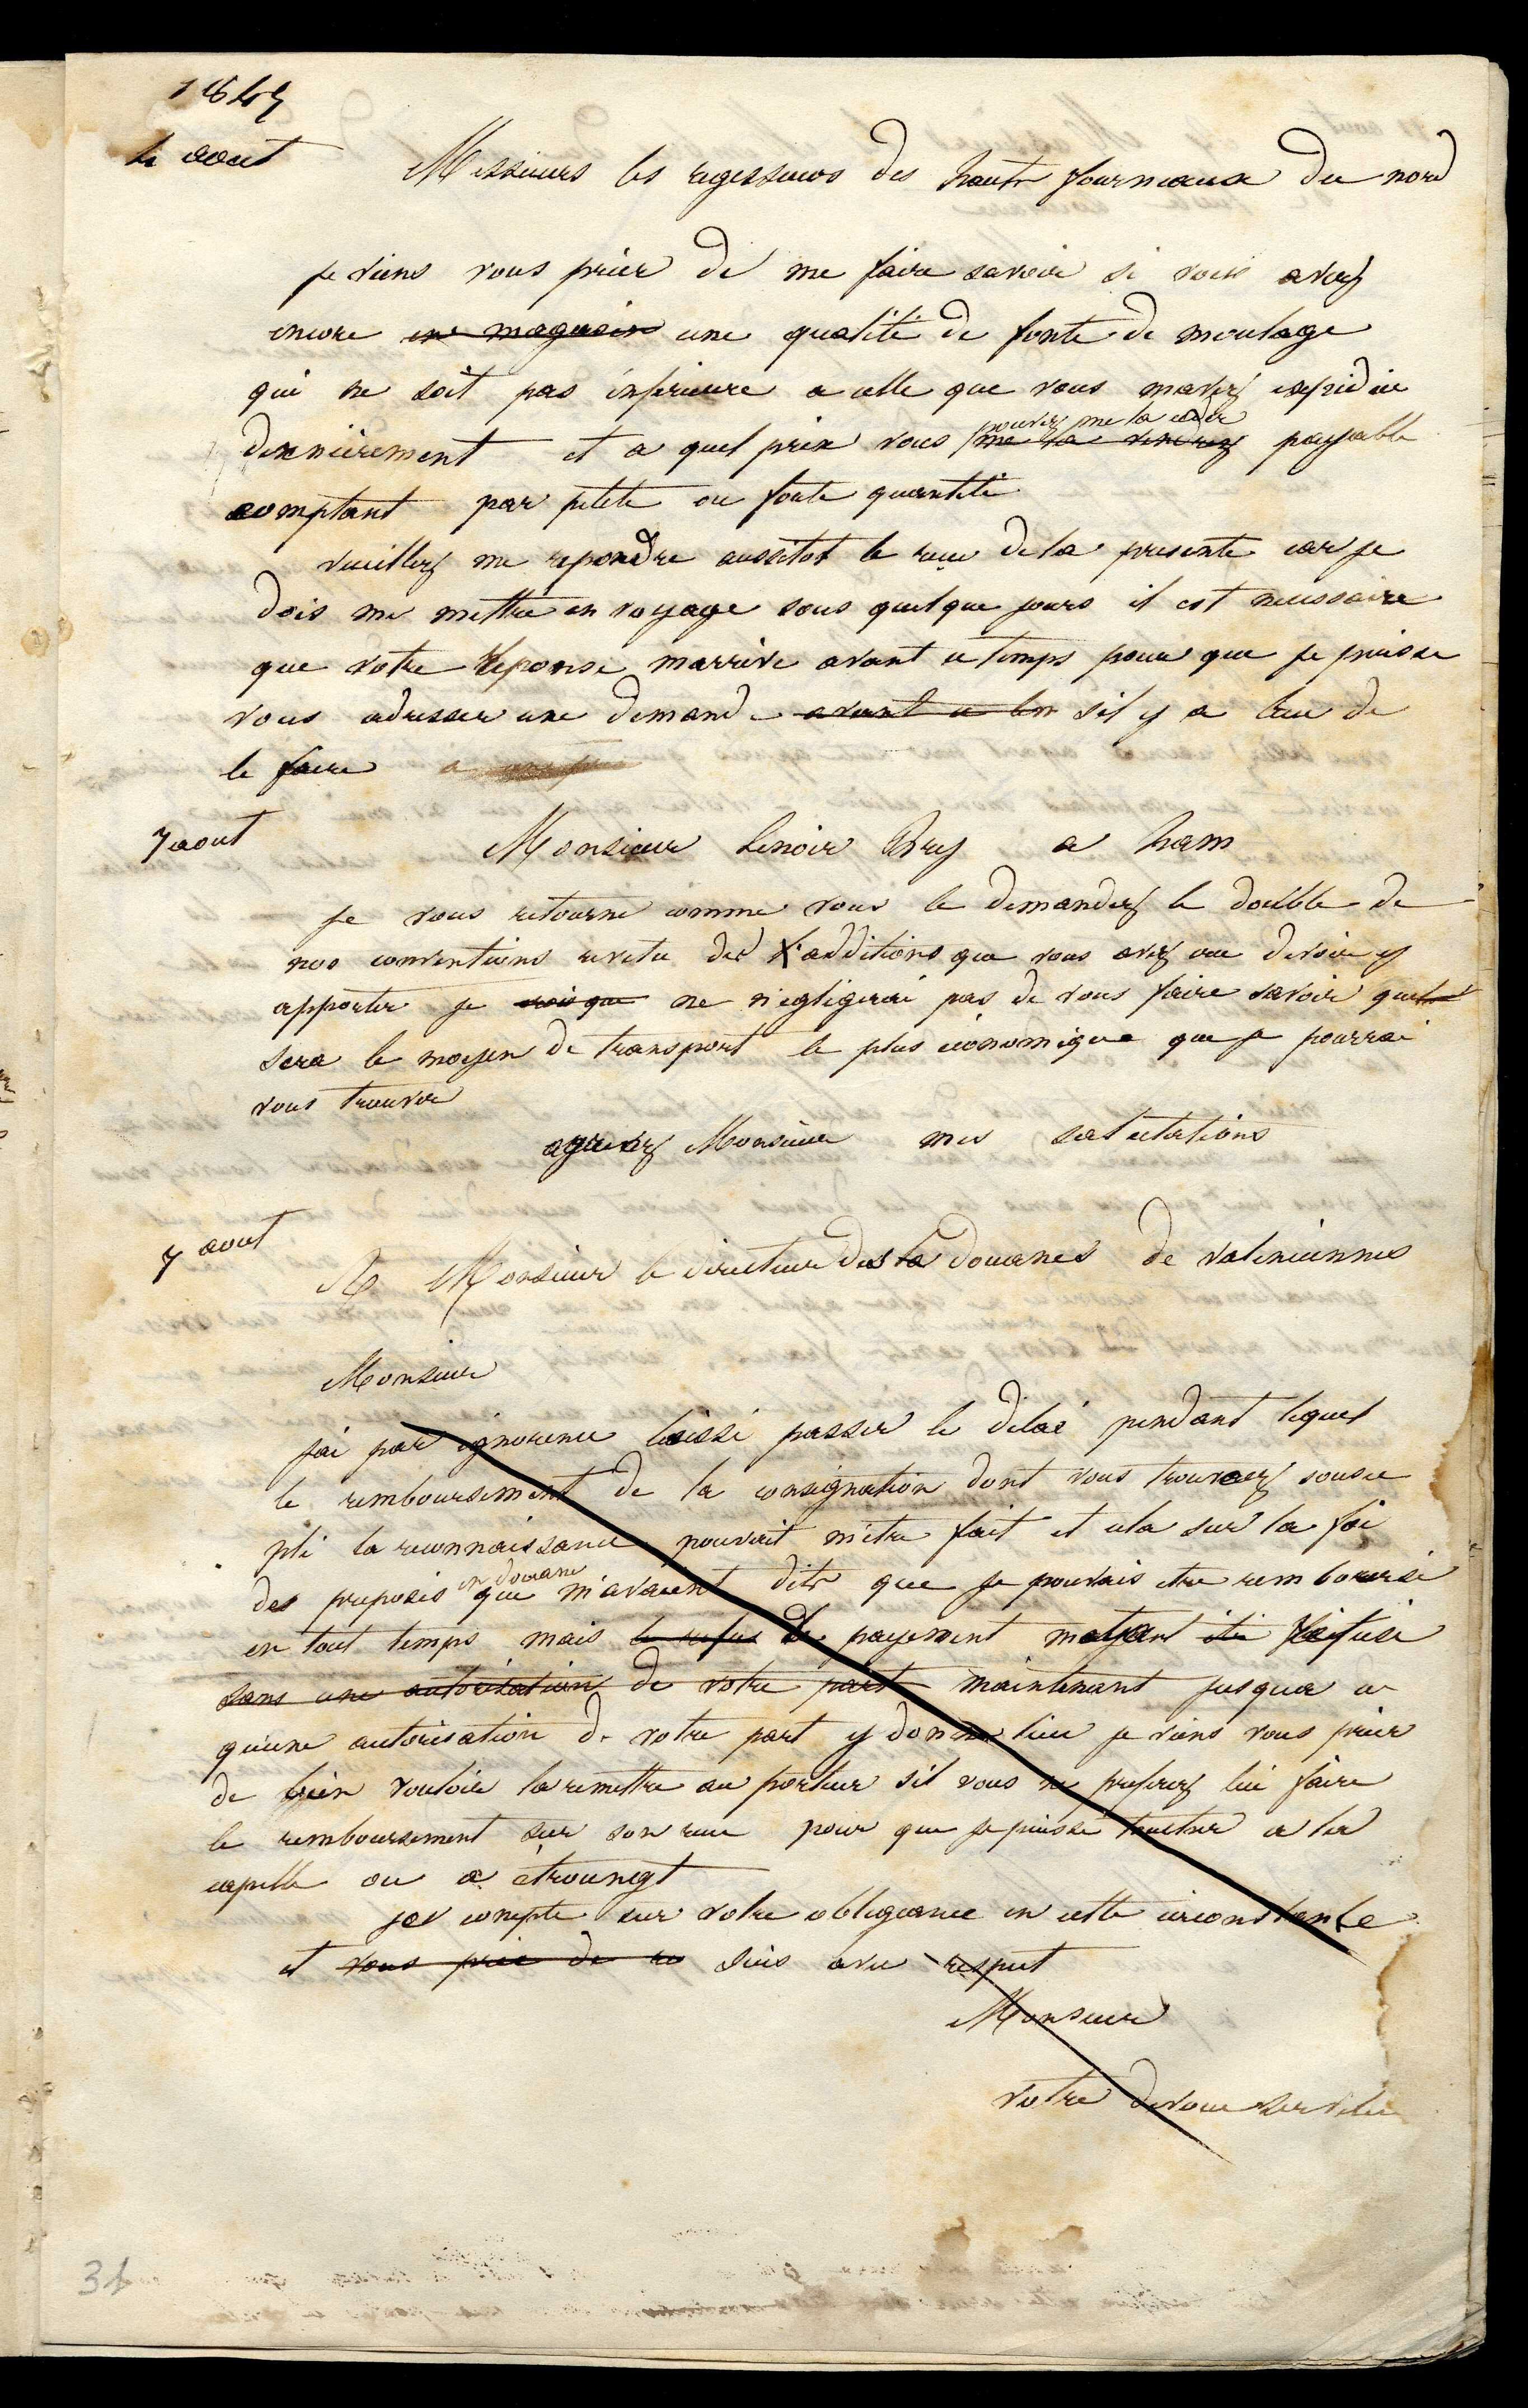 aout
Messieurs les regisseurs des haut fourneaux du nord
je viens vous prier de me faire savoir si vous avez
encore en magasin une qualité de fonte de moulage
qui ne soit pas inferieure a celle que vous mavez expediée
pouvez me la ceder
dernièrement et a quel prix vous me la vendrez payable
comptant par petite ou forte quantité
veuillez me repondre aussitot le recu de la presente car je
dois me mettre en voyage sous quelque jours il est necessaire
que votre reponse marrive avant ce temps pour que je puisse
vous adresser une demande avant ce tem sil y a lieu de
le faire a
7 aout
Monsieur Lenoir Bry a ham
je vous retourne comme vous le demandez le double de
nos conventions revetu des additions que vous avez cru devoir y
apporter je crois que ne negligerai pas de vous faire savoir quel
sera le moyen de transport le plus économique que je pourrai
vous trouver
agreez Monsieur mes salutations
7 aout
A Monsieur le directeur des douanes de valenciennes
Monsieur
jai par ignorence laissé passer le délai pendant lequel
le remboursement de la consignation dont vous trouverez sous ce
pli la reconnaissance pouvait métre fait et cela sur la foi
en douane
des preposés que m'avaient dits que je pouvais etre remboursé
en tout temps mais le refus de payement mayant été refusé
sans une autorisation de votre part maintenant jusqua ce
qu'une autorisation de votre part y donne lieu je viens vous prier
de bien vouloir la remettre au porteur sil vous ne preferez lui faire
le remboursement sur son recu pour que je puisse toucher a la
capelle ou a étroungt
jai compte sur votre obligeance en cette circonstance
et vous prie de suis avec respect
Monsieur
votre devoué serviteur
31